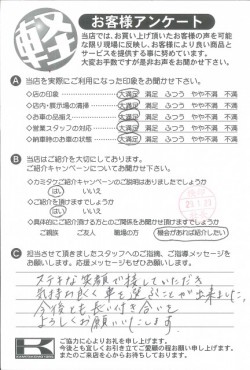 軽
お客様アンケート
当店では、お買い上げ頂いたお客様の声を可能
な限り現場に反映し、お客様により良い商品と
サービスを提供する事に努めています。
大変お手数ですが是非お声をお聞かせ下さい。
A 当店を実際にご利用になった印象をお聞かせ下さい。
◇店の印象 大満足 満足 ふつう やや不満 不満
◇店内・展示場の清掃 大満足 満足 ふつう やや不満 不満
◇お車の品揃え 大満足 満足 ふつう やや不満 不満
◇営業スタッフの対応 大満足 満足 ふつう やや不満 不満
◇納車時のお車の状態 大満足 満足 ふつう やや不満 不満
B 当店はご紹介を大切にしております。
ご紹介キャンペーンについてお聞かせ下さい。
◇カミタケご紹介キャンペーンのご説明はありましたでしょうか
はい いいえ
◇ご紹介を頂けますでしょうか
はい いいえ
◇具体的にご紹介頂ける方とのご関係をお聞かせ頂けますでしょうか
ご親族 ご友人 職場の方 機会があれば紹介したい
C 担当させて頂きましたスタッフへのご指摘、ご指導メッセージを
お願いします。応援メッセージもぜひお願いします。
ステキな笑顔で接していただき
気持ち良く車を選ぶことが出来ました。
今後とも長い付き合いを
よろしくお願いいたします。
ご協力に心よりお礼を申し上げます。
今後とも宜しくお引き立てご愛顧の程お願い申し上げます。
またのご来店を心からお待ちしております。